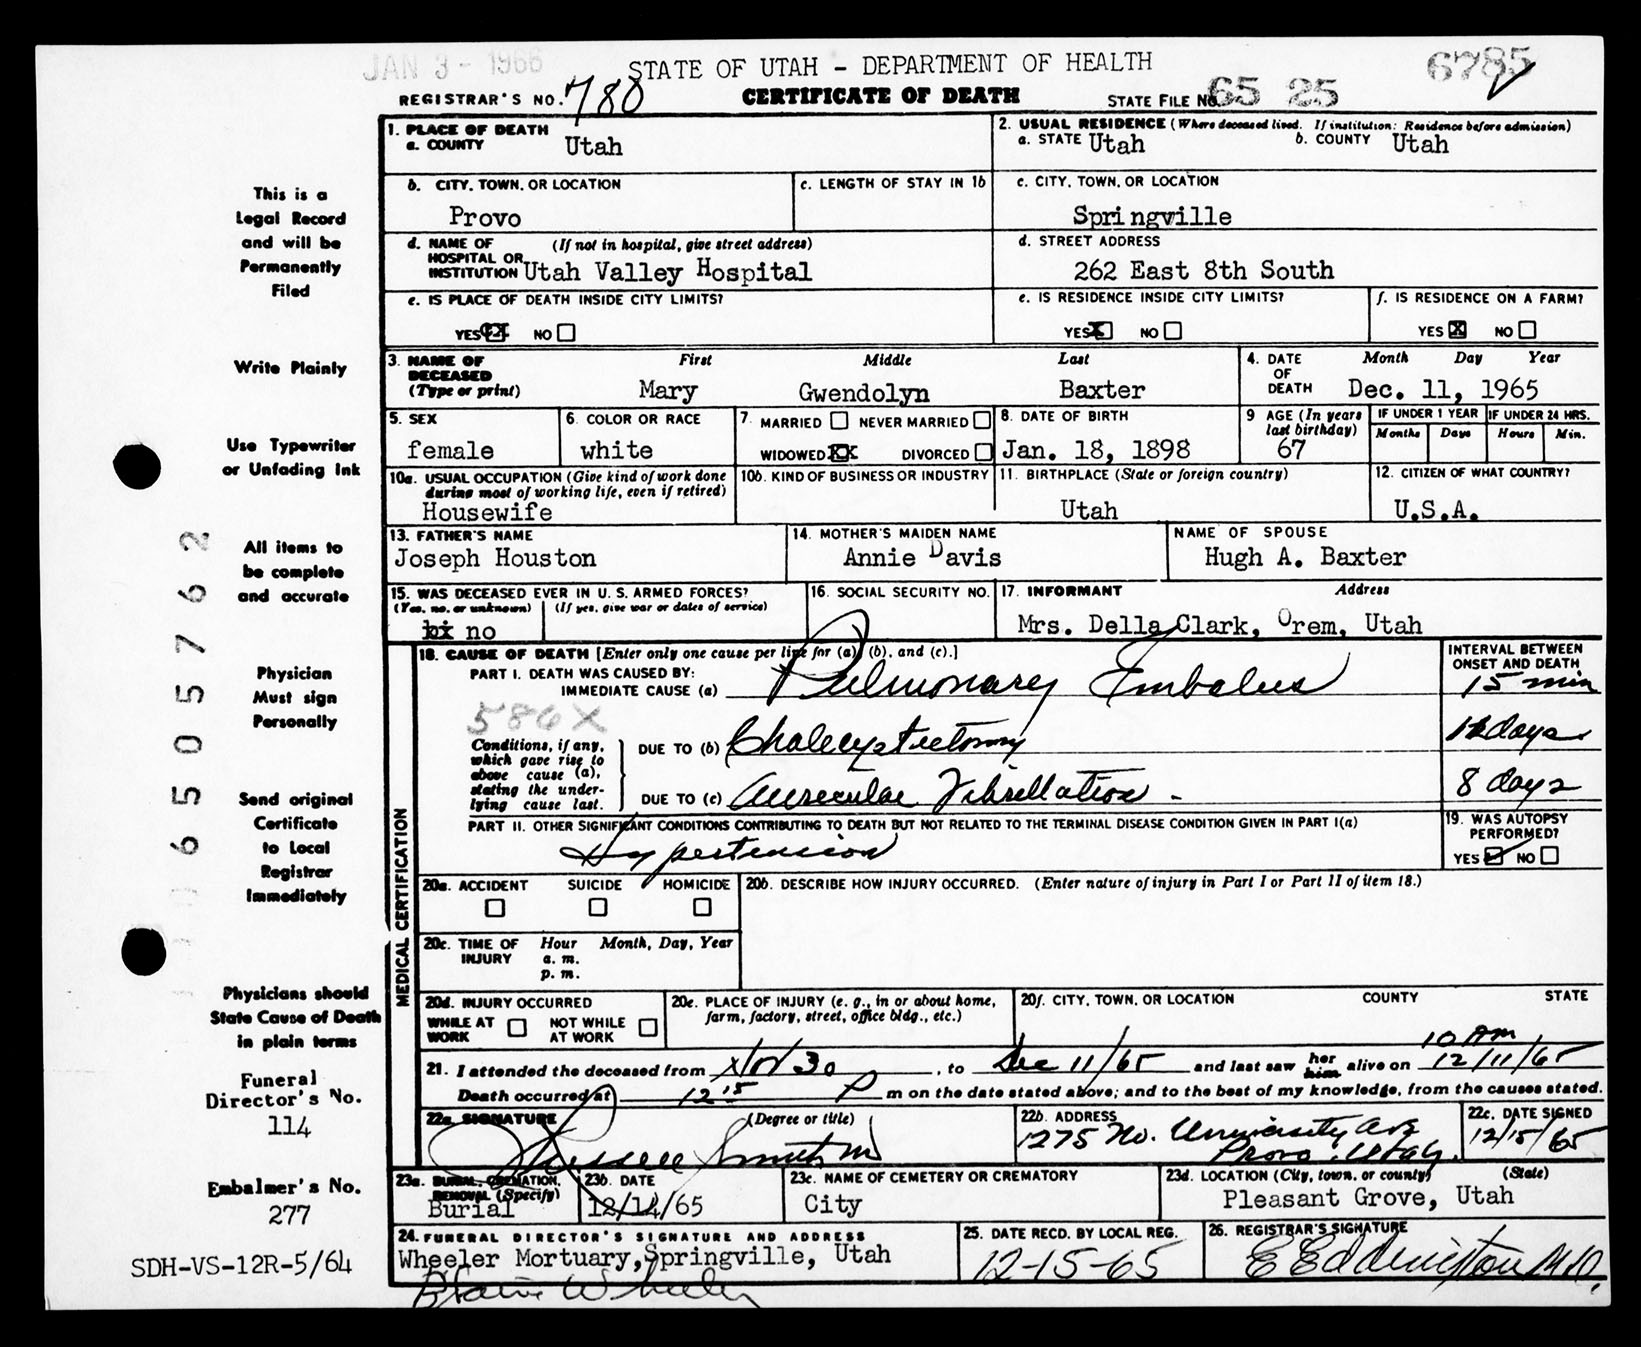 JAN 3 - 1966
STATE OF UTAH - DEPARTMENT OF HEALTH
6785
REGISTRAR'S NO. 780
CERTIFICATE OF DEATH
STATE FILE NO. 65 25
1. PLACE OF DEATH
a. COUNTY Utah
2. USUAL RESIDENCE (Where deceased lived. If institution: Residence before admission)
a. STATE Utah b. COUNTY Utah
b. CITY, TOWN, OR LOCATION
Provo
c. LENGTH OF STAY IN 1b
c. CITY, TOWN, OR LOCATION
Springville
d. NAME OF HOSPITAL OR INSTITUTION (If not in hospital, give street address)
Utah Valley Hospital
d. STREET ADDRESS
262 East 8th South
e. IS PLACE OF DEATH INSIDE CITY LIMITS?
YES NO
e. IS RESIDENCE INSIDE CITY LIMITS?
YES X NO
f. IS RESIDENCE ON A FARM?
YES X NO
3. NAME OF DECEASED (Type or print)
First Middle Last
Mary Gwendolyn Baxter
4. DATE OF DEATH
Month Day Year
Dec. 11, 1965
5. SEX
female
6. COLOR OR RACE
white
7. MARRIED NEVER MARRIED
WIDOWED XX DIVORCED
8. DATE OF BIRTH
Jan. 18, 1898
9 AGE (In years last birthday)
67
IF UNDER 1 YEAR
Months Days
IF UNDER 24 HRS.
Hours Min.
10a. USUAL OCCUPATION (Give kind of work done during most of working life, even if retired)
Housewife
10b. KIND OF BUSINESS OR INDUSTRY
11. BIRTHPLACE (State or foreign country)
Utah
12. CITIZEN OF WHAT COUNTRY?
U.S.A.
13. FATHER'S NAME
Joseph Houston
14. MOTHER'S MAIDEN NAME
Annie Davis
NAME OF SPOUSE
Hugh A. Baxter
15. WAS DECEASED EVER IN U. S. ARMED FORCES?
(Yes, no, or unknown) (If yes, give war or dates of service)
no
16. SOCIAL SECURITY NO.
17. INFORMANT Address
Mrs. Della Clark, Orem, Utah
MEDICAL CERTIFICATION
18. CAUSE OF DEATH [Enter only one cause per line for (a), (b), and (c).]
INTERVAL BETWEEN ONSET AND DEATH
PART I. DEATH WAS CAUSED BY:
IMMEDIATE CAUSE (a) Pulmonary Embolus 15 min
586X
Conditions, if any, which gave rise to above cause (a), stating the underlying cause last.
DUE TO (b) Cholecystectomy days
DUE TO (c) Auricular Fibrillation - 8 days
PART II. OTHER SIGNIFICANT CONDITIONS CONTRIBUTING TO DEATH BUT NOT RELATED TO THE TERMINAL DISEASE CONDITION GIVEN IN PART I(a)
Hypertension
19. WAS AUTOPSY PERFORMED?
YES NO
20a. ACCIDENT SUICIDE HOMICIDE
20b. DESCRIBE HOW INJURY OCCURRED. (Enter nature of injury in Part I or Part II of item 18.)
20c. TIME OF INJURY Hour Month, Day, Year
a. m.
p. m.
20d. INJURY OCCURRED
WHILE AT WORK NOT WHILE AT WORK
20e. PLACE OF INJURY (e. g., in or about home, farm, factory, street, office bldg., etc.)
20f. CITY, TOWN, OR LOCATION COUNTY STATE
10 AM
21. I attended the deceased from Nov 30, to Dec 11/65 and last saw her him alive on 12/11/65
Death occurred at 12 15 P m on the date stated above; and to the best of my knowledge, from the causes stated.
22a. SIGNATURE (Degree or title)
Russell Smith MD
22b. ADDRESS
1275 No. University Ave
Provo Utah.
22c. DATE SIGNED
12/15/65
23a. BURIAL, CREMATION, REMOVAL (Specify)
Burial
23b. DATE
12/14/65
23c. NAME OF CEMETERY OR CREMATORY
City
23d. LOCATION (City, town, or county) (State)
Pleasant Grove, Utah
24. FUNERAL DIRECTOR'S SIGNATURE AND ADDRESS
Wheeler Mortuary, Springville, Utah
Blaine Wheeler
25. DATE RECD. BY LOCAL REG.
12-15-65
26. REGISTRAR'S SIGNATURE
E Eddington M.D.
This is a
Legal Record
and will be
Permanently
Filed
Write Plainly
Use Typewriter
or Unfading Ink
All items to
be complete
and accurate
Physician
Must sign
Personally
Send original
Certificate
to Local
Registrar
Immediately
Physicians should
State Cause of Death
in plain terms
Funeral
Director's No.
114
Embalmer's No.
277
SDH-VS-12R-5/64
06505762